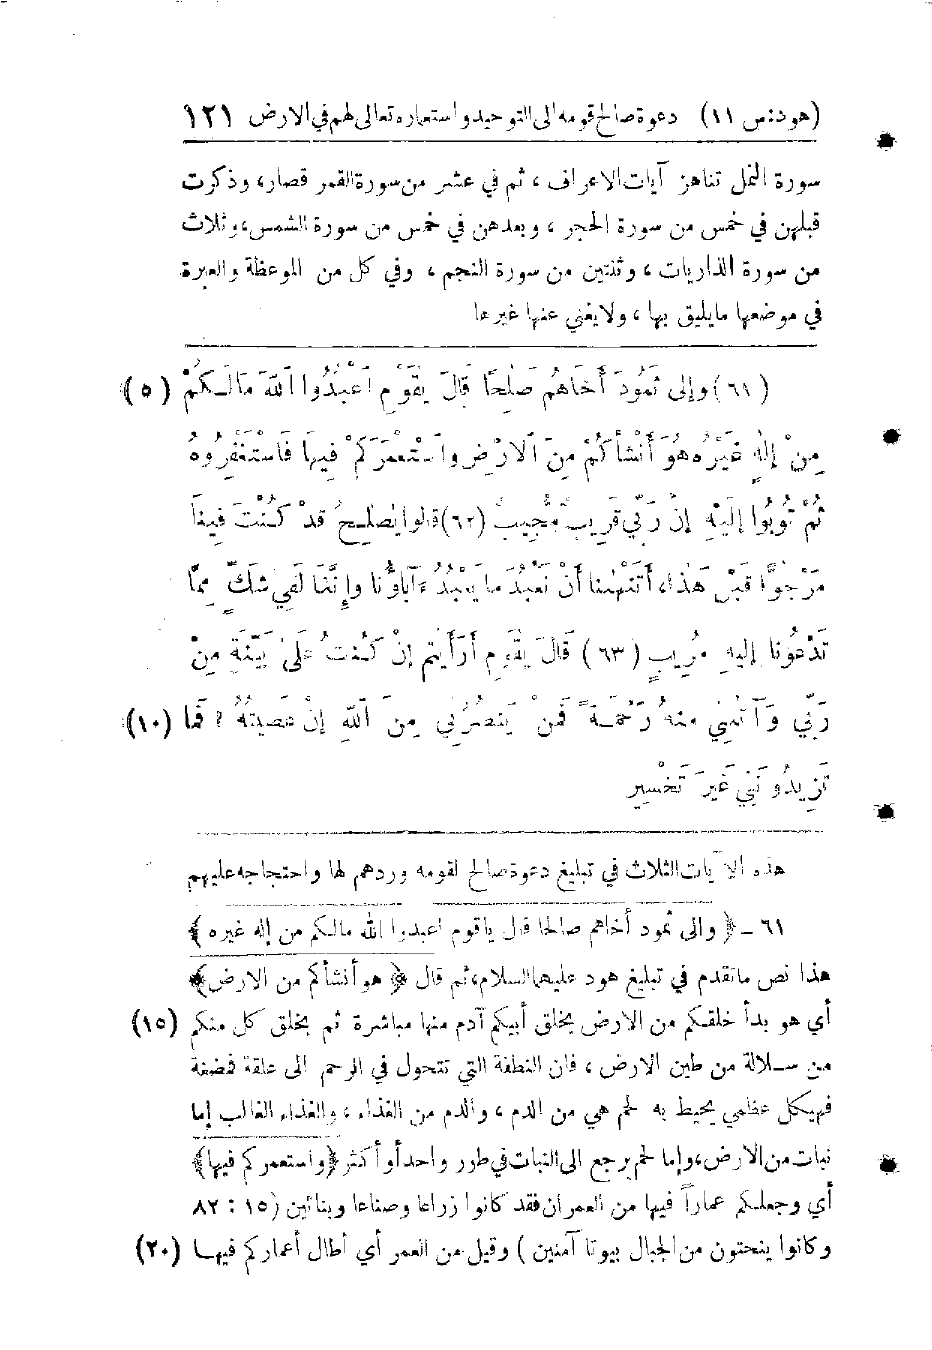 (هود: س ١١) دعوة صالح قومه الى التوحيد واستعماره تعالى لهم في الارض ١٢١
سورة النمل تناهز آيات الاعراف ، ثم في عشر من سورة القمر قصار، وذكرت
قبلهن في خمس من سورة الحجر ، وبعدهن في خمس من سورة الشمس، وثلاث
من سورة الذاريات ، وثنتين من سورة النجم ، وفي كل من الموعظة والعبرة
في موضعها مايليق بها ، ولا يغني عنها غيرها
(٦١) وإلى ثَمُودَ أَخَاهُم صَٰلِحًا قَالَ يَٰقَوْمِ اعْبُدُوا اللهَ مَالَكُمْ (٥)
مِنْ إِلَٰهٍ غَيْرُهُ هُوَ أَنْشَأَكُمْ مِنَ الْارْضِ وَاسْتَعْمَرَكُمْ فِيهَا فَاسْتَغْفِرُوهُ
ثُمَّ تُوبُوا إِلَيْهِ إِنَّ رَبِّي قَرِيبٌ مُجِيبٌ (٦٢) قالوا يٰصٰلِحُ قَدْ كُنْتَ فِينَا
مَرْجُوًّا قَبْلَ هَٰذَا، أَتَنْهَٰىنَا أَنْ نَعْبُدَ مَا يَعْبُدُ ءَابَاؤُنَا وإِنَّنَا لَفِي شَكٍّ مِمَّا
تَدْعُونَا إِلَيهِ مُرِيبٍ (٦٣) قَالَ يٰقَوْمِ أَرَأَيْتُم إِنْ كُنتُ عَلَىٰ بَيِّنَةٍ مِنْ
رَبِّي وَآتَىٰنِي مِنهُ رَحْمَةً فَمَنْ يَنصُرُنِي مِنَ اللهِ إِنْ عَصَيتُهُ ؟ فَمَا (١٠)
تَزِيدُونَنِي غَيرَ تَخْسِيرٍ
هذه الآيات الثلاث في تبليغ دعوة صالح لقومه وردهم لها واحتجاجه عليهم
٦١ ــ ﴿ والى ثمود أخاهم صالحا قال ياقوم اعبدوا الله مالكم من إله غيره ﴾
هذا نص ماتقدم في تبليغ هود عليهما السلام، ثم قال ﴿ هو أنشأكم من الارض﴾
أي هو بدأ خلقكم من الارض بخلق أبيكم آدم منها مباشرة ثم بخلق كل منكم (١٥)
من سـلالة من طين الارض ، فان النطفة التي تتحول في الرحم الى علقة فمضغة
فهيكل عظمي يحيط به لحم هي من الدم ، والدم من الغذاء ، والغذاء الغالب إما
نبات من الارض، وإما لحم يرجع الى النبات في طور واحد أو أكثر ﴿واستعمركم فيها﴾
أي وجعلكم عماراً فيها من العمران فقد كانوا زراعا وصناعا وبنائين (١٥ : ٨٢
وكانوا ينحتون من الجبال بيوتا آمنين ) وقيل من العمر أي أطال أعماركم فيهـا (٢٠)